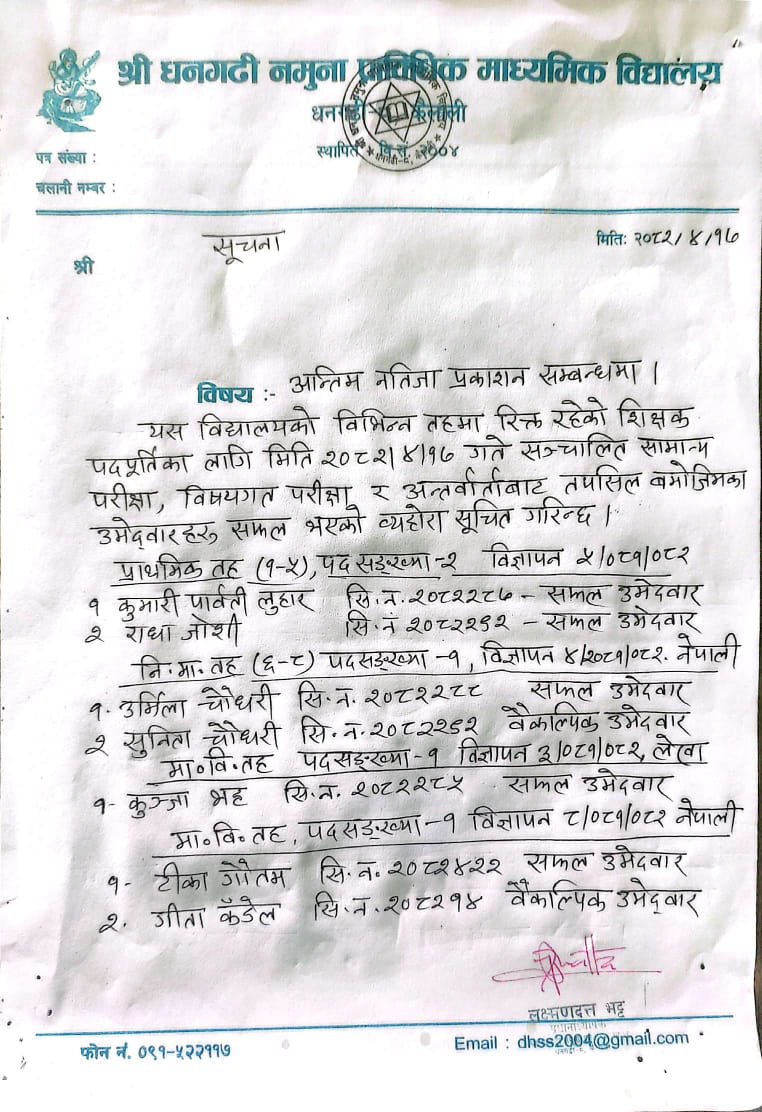 श्री धनगढी नमुना प्राविधिक माध्यमिक विद्यालय
धनगढी कैलाली
स्थापित वि.सं. २००४
पत्र संख्या :
चलानी नम्बर :
सूचना
मिति: २०८२/४/१७
श्री
विषय :- अन्तिम नतिजा प्रकाशन सम्बन्धमा ।
यस विद्यालयको विभिन्न तहमा रिक्त रहेको शिक्षक
पदपूर्तिका लागि मिति २०८२/४/१७ गते सञ्चालित सामान्य
परीक्षा, विषयगत परीक्षा र अन्तर्वार्ताबाट तपसिल बमोजिमका
उमेद्‌वारहरु सफल भएको व्यहोरा सूचित गरिन्छ ।
प्राथमिक तह (१-५), पद सङ्ख्या-२ विज्ञापन ५/०८१/०८२
१ कुमारी पार्वती लुहार सि.न. २०८२२८७ - सफल उमेदवार
२ राधा जोशी सि.नं २०८२२९२ - सफल उमेदवार
नि.मा.तह (६-८) पदसङ्ख्या -१, विज्ञापन ४/२०८१/०८२. नेपाली
१. उर्मिला चौधरी सि.न. २०८२२८८ सफल उमेदवार
२ सुनिता चौधरी सि.न. २०८२२६२ वैकल्पिक उमेदवार
मा.वि.तह पदसङ्ख्या -१ विज्ञापन ३/०८१/०८२, लेखा
१- कुञ्जा भट्ट सि.न. २०८२२८५ सफल उमेदवार
मा.वि.तह, पदसङ्ख्या -१ विज्ञापन ८/०८१/०८२ नेपाली
१- टीका गौतम सि.न. २०८२४२२ सफल उमेदवार
२. गीता कँडेल सि.न. २०८२१४ वैकल्पिक उमेद्‌वार
लक्ष्मणदत्त भट्ट
प्रधानाध्यापक
फोन नं. ०९१-५२२११७
Email : dhss2004@gmail.com